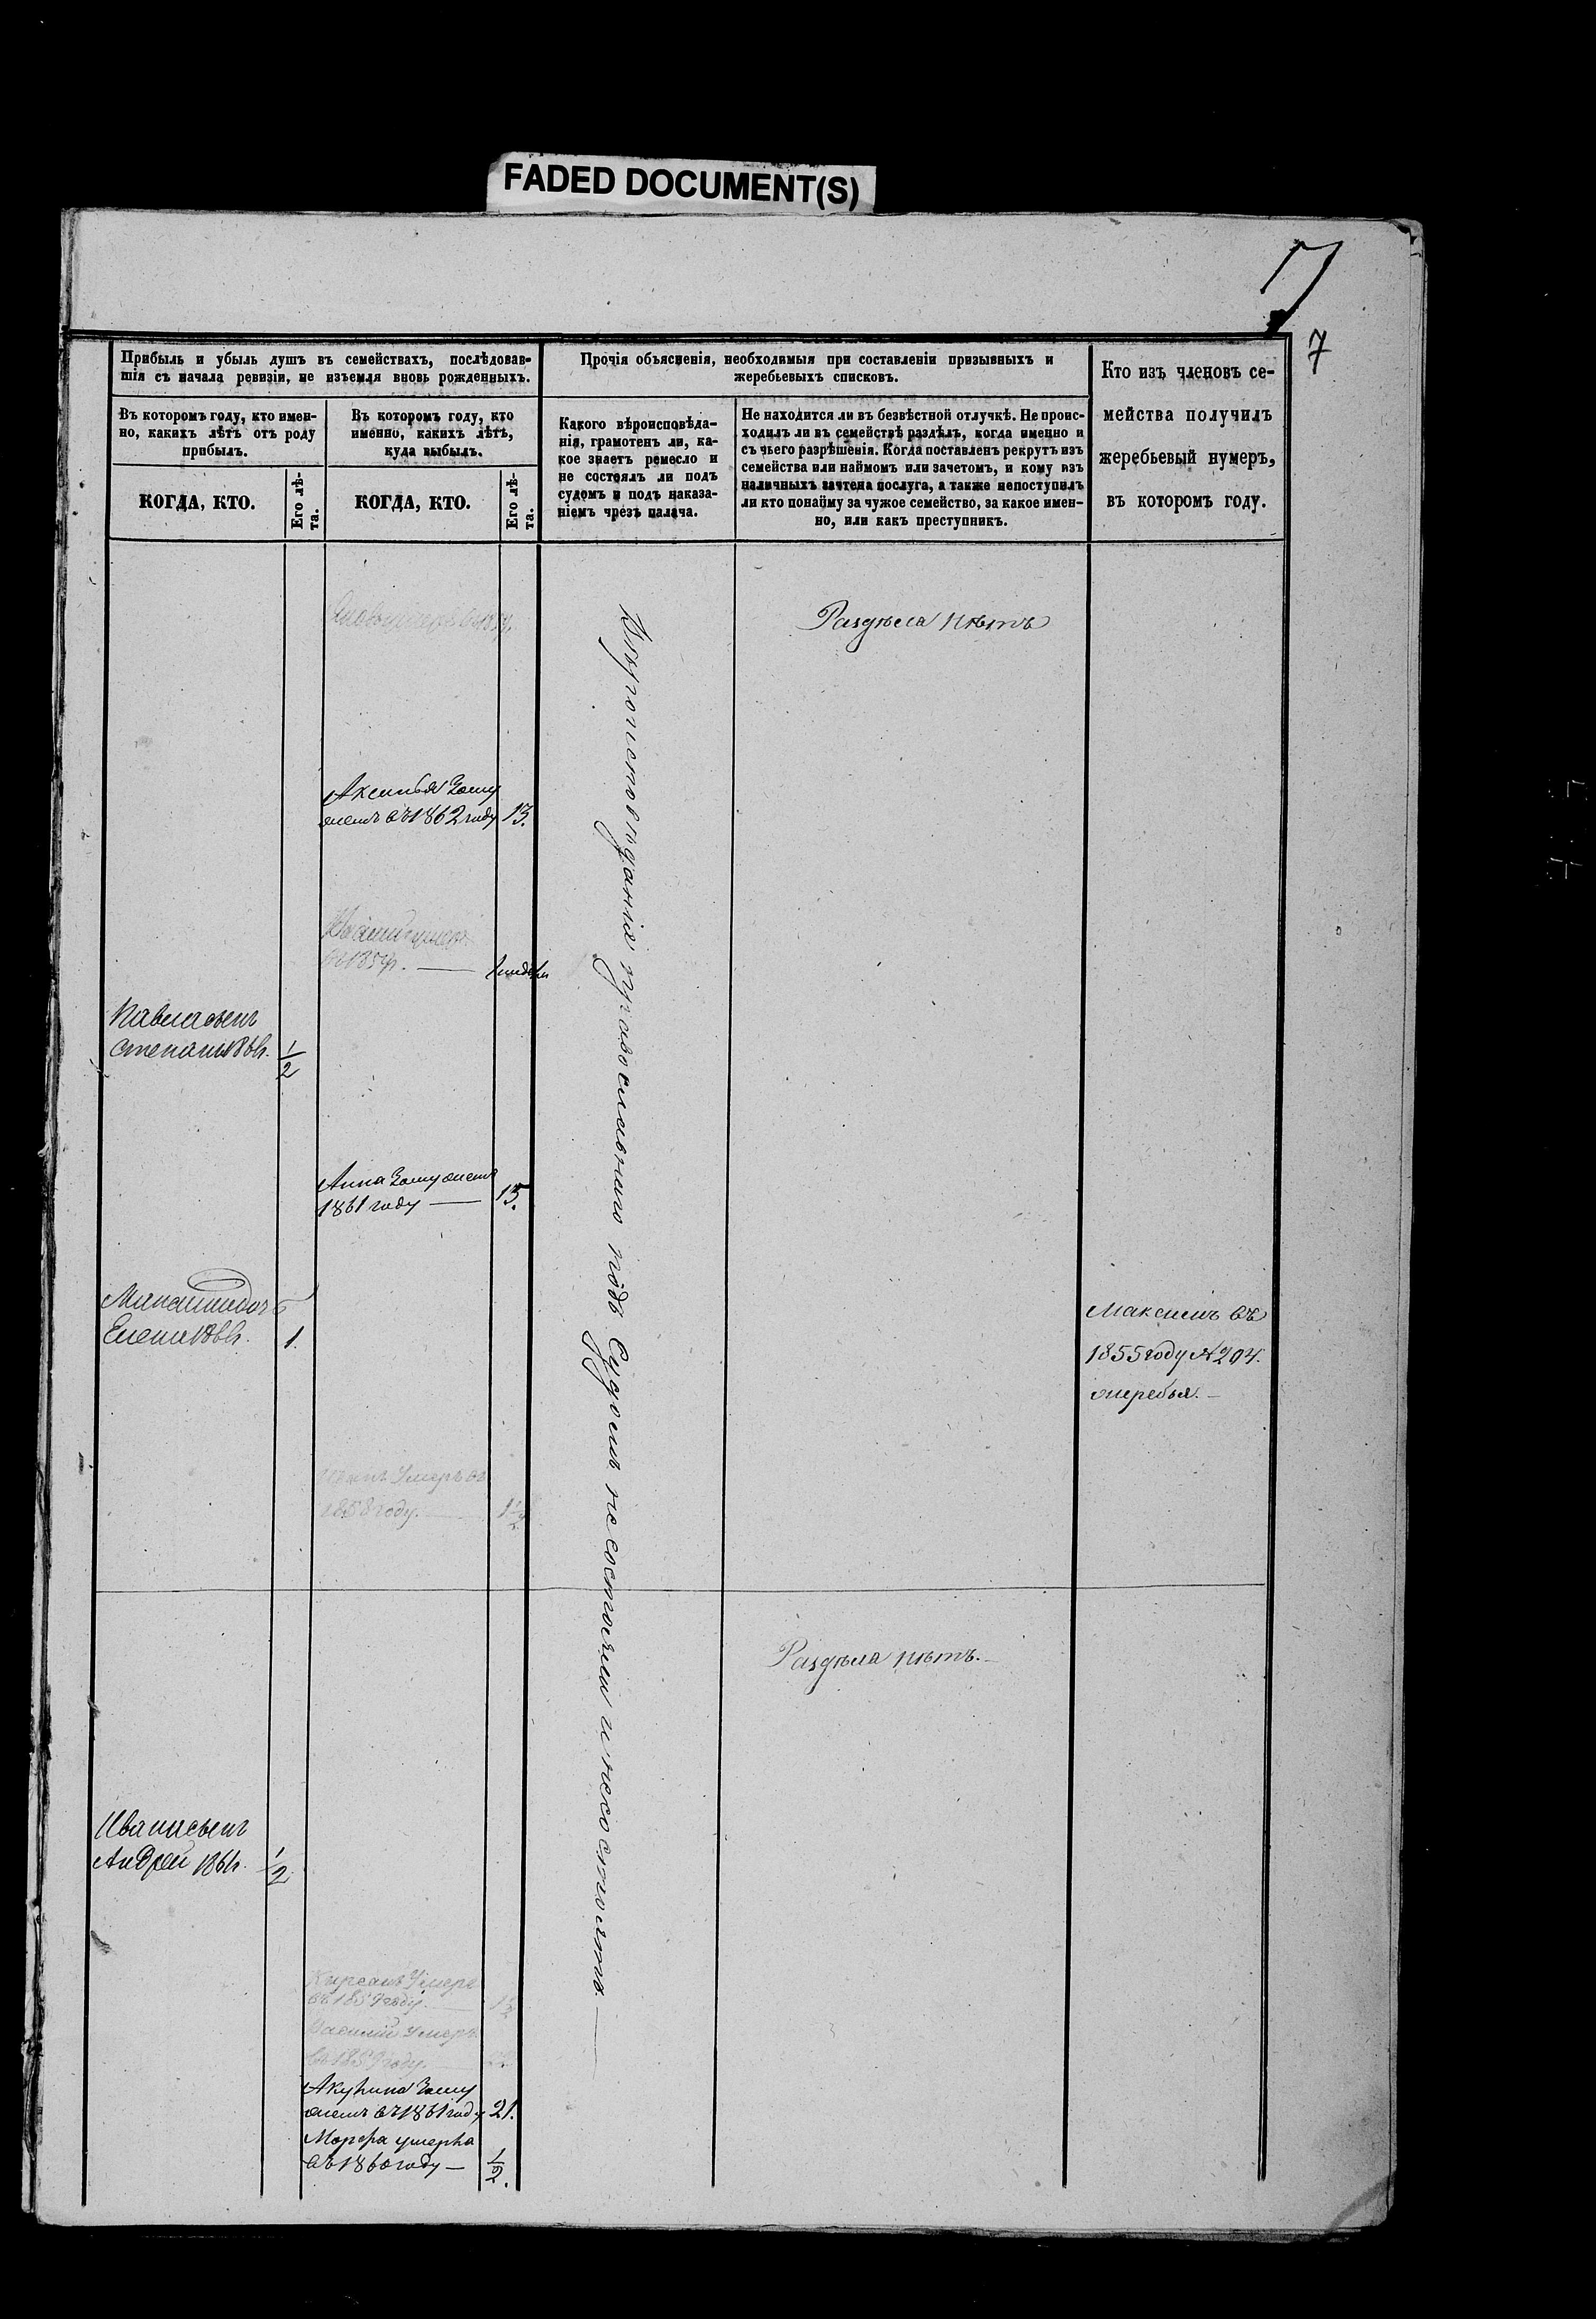 FADED DOCUMENT(S)
7
Прибыль и убыль душъ въ семействахъ, послѣдовав-
шія съ начала ревизіи, не изъемля вновь рожденныхъ.
Въ которомъ году, кто имен-
но, какихъ лѣтъ отъ роду
прибылъ.
КОГДА, КТО.
Его лѣ-
та.
Въ которомъ году, кто
именно, какихъ лѣтъ,
куда выбылъ.
КОГДА, КТО.
Его лѣ-
та.
Прочія объясненія, необходимыя при составленіи призывныхъ и
жеребьевыхъ списковъ.
Какого вѣроисповѣда-
нія, грамотенъ ли, ка-
кое знаетъ ремесло и
не состоялъ ли подъ
судомъ и подъ наказа-
ніемъ чрезъ палача.
Не находится ли въ безвѣстной отлучкѣ. Не проис-
ходилъ ли въ семействѣ раздѣлъ, когда именно и
съ чьего разрѣшенія. Когда поставленъ рекрутъ изъ
семейства или наймомъ или зачетомъ, и кому изъ
наличныхъ зачтена послуга, а также непоступилъ
ли кто понайму за чужое семейство, за какое имен-
но, или какъ преступникъ.
Кто изъ членовъ се-
мейства получилъ
жеребьевый нумеръ,
въ которомъ году.
Раздѣла нѣтъ
Аксинья Заму
жемъ въ 1862 году 13.
Павла сынъ
Степанъ 1/2
Анна Замужемъ
1861 году — 15.
1.
Максимъ въ
1855 году № 204.
жеребья. —
Иванъ Умеръ въ
1858 году. — 1 1/2
Вѣроисповѣданія православнаго подъ Судомъ не состояли и несостоятъ. —
Раздѣла нѣтъ. —
Ивана сынъ
Андрей 1/2
Кирсанъ Умеръ
въ 1859 году. —
Василій Умеръ
въ 1859 году. —
Акулина Заму
жемъ въ 1861 году 21.
Марфа умерла
въ 1860 году — 1/2.